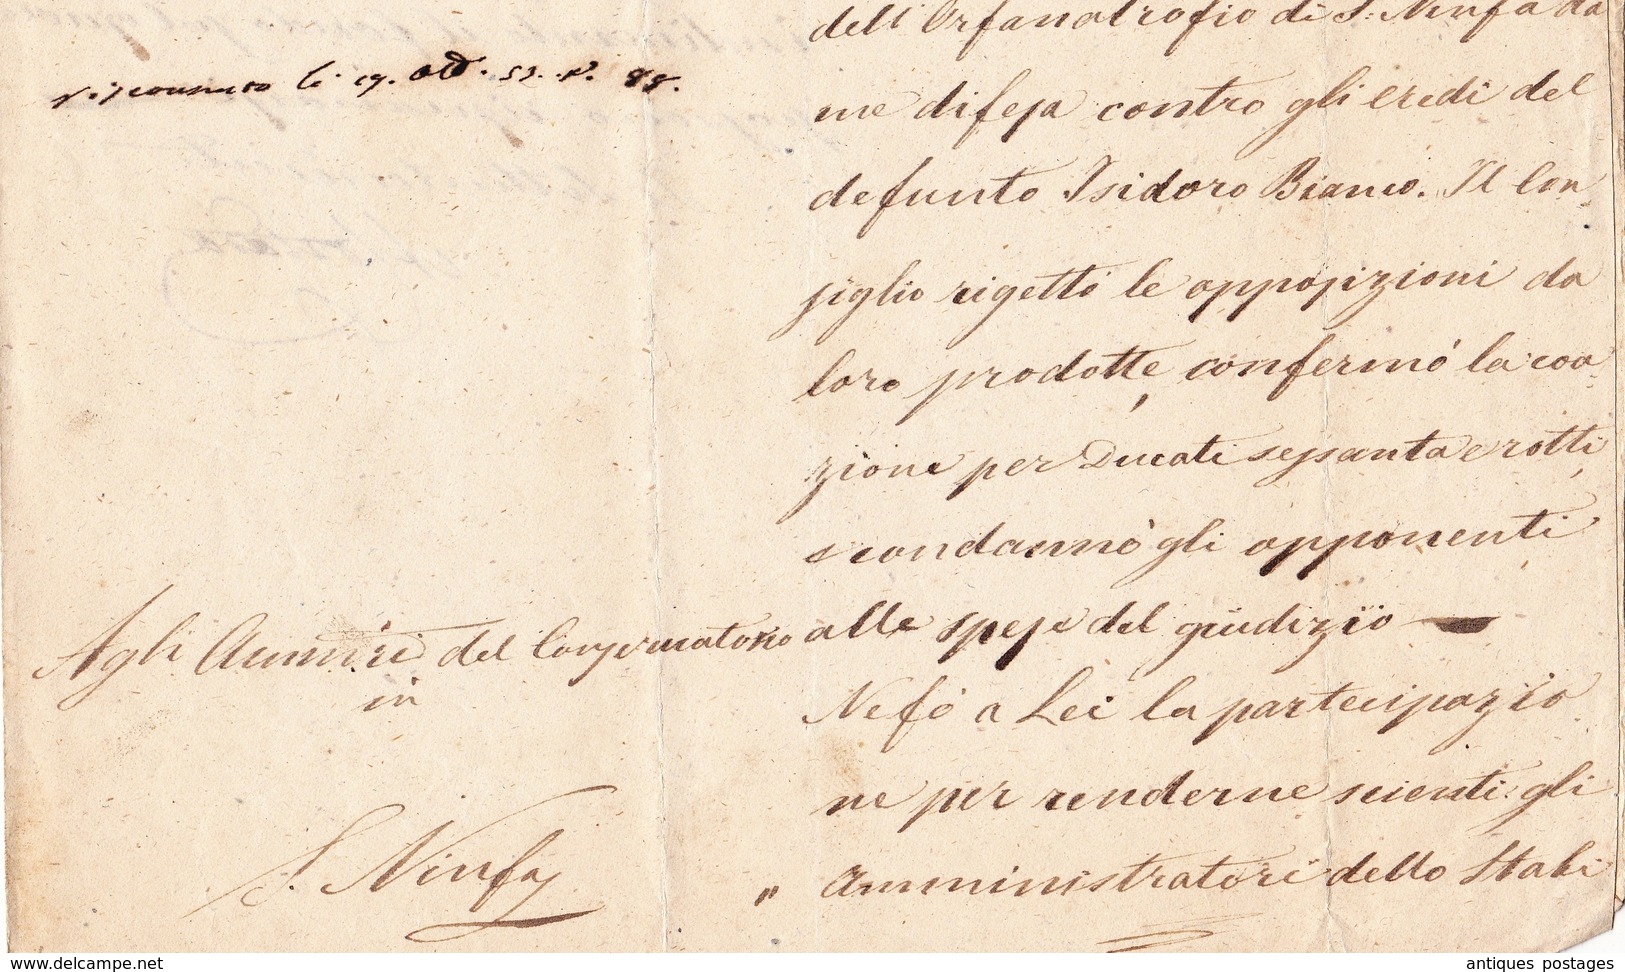 dell'Orfanotrofio di S. Ninfa da
me difesa contro gli eredi del
defunto Isidoro Bianco. Il Con
siglio rigettò le opposizioni da
loro prodotte, confermò la coa
zione per Ducati sessanta e rotti,
e condannò gli opponenti
alle spese del giudizio
Nefò a Lei la partecipazio
ne per renderne scienti gli
Amministratori dello Stabi
li 19. 52. N. 88.
Agli Ammri del Conservatorio
in
S. Ninfa
www.delcampe.net
antiques postages